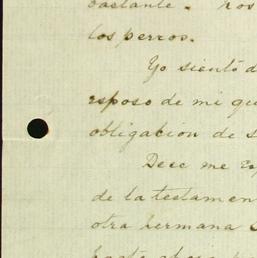 bastante. Nos
los perros.
Yo siento d
esposo de mi qu
obligacion de s
Dece me es
de la testamen
otra hermana
hasta ahora